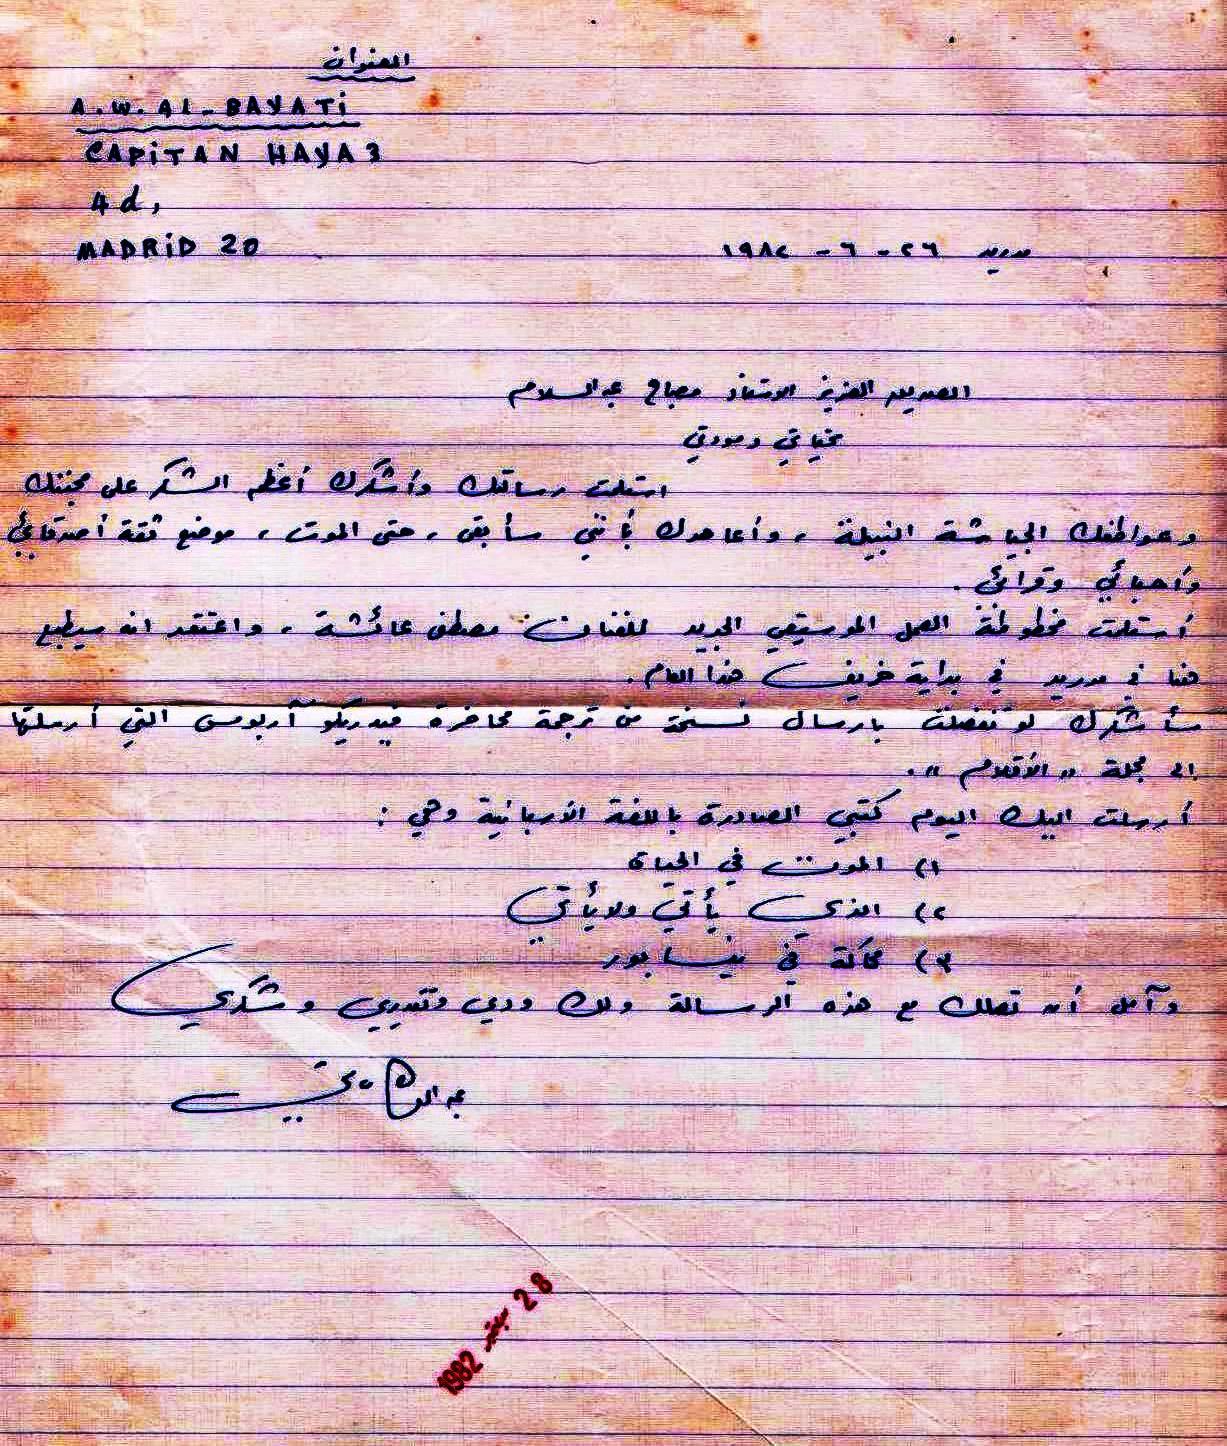 العنوان
A.W. AL-BAYATi
CAPiTAN HAYA 3
4 d,
MADRiD 20
مدريد ٢٦ - ٦ - ١٩٨٢
الصديق العزيز الاستاذ مصباح عبدالسلام
تحياتي ومودتي
استلمت رسالتك وأشكرك أعظم الشكر على محبتك
وعواطفك الجياشة النبيلة، وأعاهدك بأنني سأبقى، حتى الموت، موضع ثقة أصدقائي
وأحبائي وقرائي.
أستلمت مخطوطة العمل الموسيقي الجديد للفنان مصطفى عائشة، واعتقد انه سيطبع
هنا في مدريد في بداية خريف هذا العام.
سأشكرك لو تفضلت بارسال نسخة من ترجمة محاضرة فيديريكو آربوس التي أرسلتها
الى مجلة "الأقلام".
أرسلت اليك اليوم كتبي الصادرة باللغة الأسبانية وهي:
١) الموت في الحياة
٢) الذي يأتي ولا يأتي
٣) محاكمة في نيسابور
وآمل أن تصلك مع هذه الرسالة ولك ودي وتقديري وشكري
28 1982